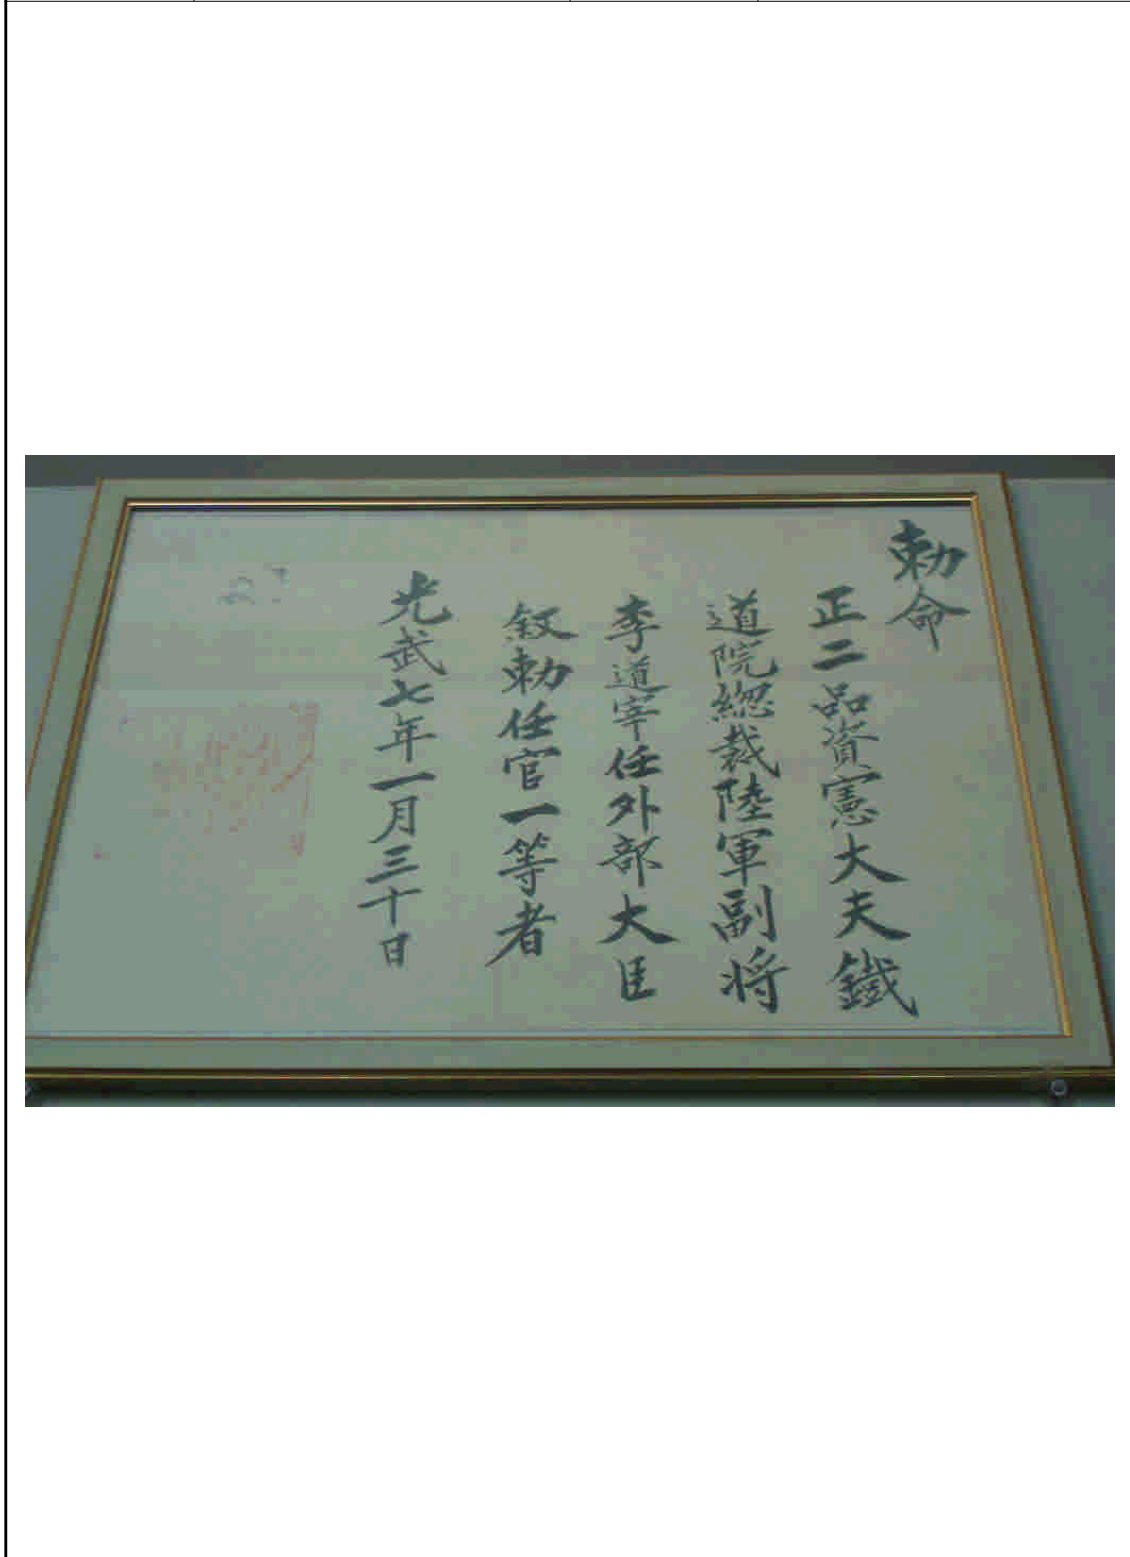 勅命
正二品資憲大夫鐵
道院總裁陸軍副將
李道宰任外部大臣
叙勅任官一等者
光武七年一月三十日